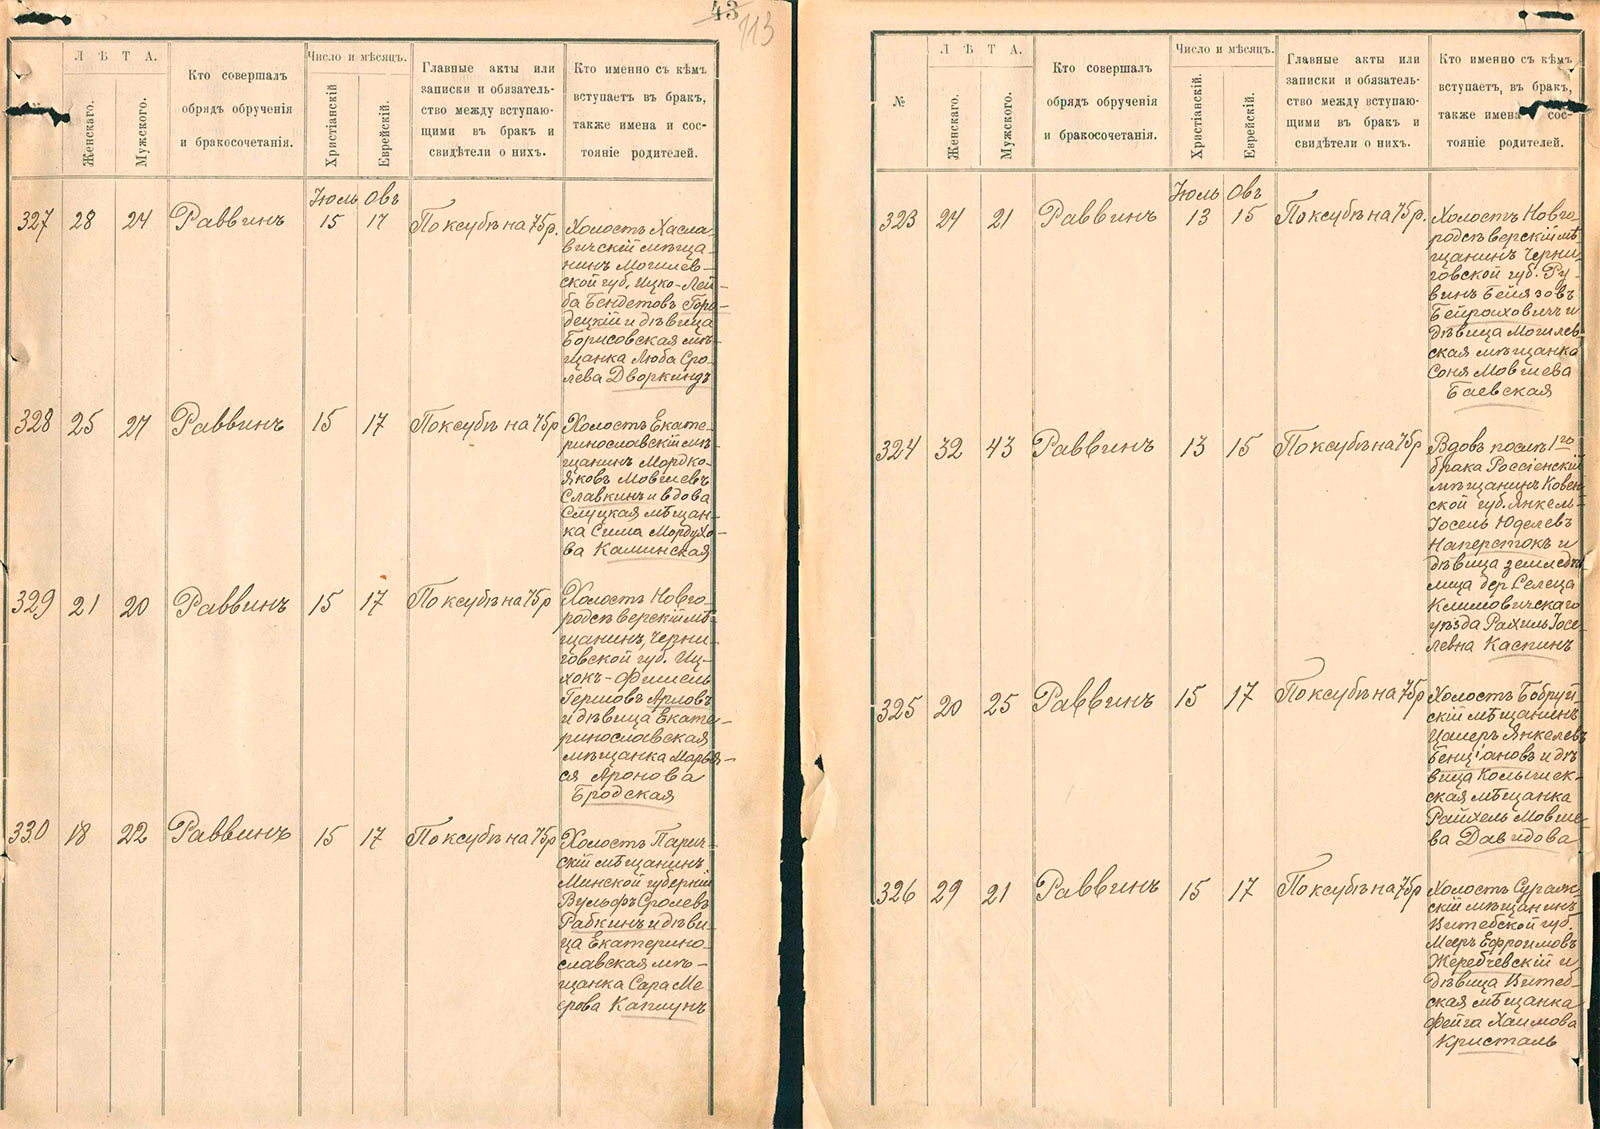 43
113
Л Ѣ Т А.
Женскаго.
Мужского.
Кто совершалъ
обрядъ обрученія
и бракосочетанія.
Число и мѣсяцъ.
Христіанскій
Еврейскій.
Главные акты или
записки и обязатель-
ство между вступаю-
щими въ бракъ и
свидѣтели о нихъ.
Кто именно съ кѣмъ
вступаетъ въ бракъ,
также имена и сос-
тояніе родителей.
Іюль Овъ
327 28 24 Раввинъ 15 17 По ксубѣ на 75р.
Холостъ Хасла-
вичскій мѣща-
нинъ Могилев-
ской губ. Ицко-Лей-
ба Бендетовъ Горо-
децкій и дѣвица
Борисовская мѣ-
щанка Люба Сро-
лева Дворкиндъ
328 25 27 Раввинъ 15 17 По ксубѣ на 75р
Холостъ Екате-
ринославскій мѣ-
щанинъ Мордко-
Яковъ Мовшевъ
Славкинъ и вдова
Слуцкая мѣщан-
ка Сима Мордухо-
ва Каминская
329 21 20 Раввинъ 15 17 По ксубѣ на 75р
Холостъ Новго-
родсѣверскій мѣ-
щанинъ, Черни-
говской губ. Иц-
хокъ-Фишель
Гершовъ Арловъ
и дѣвица Екате-
ринославская
мѣщанка Марья-
ся Аронова
Бродская
330 18 22 Раввинъ 15 17 По ксубѣ на 75р
Холостъ Парич-
скій мѣщанинъ
Минской губерніи
Вульфъ Сролевъ
Рабкинъ и дѣви-
ца Екатерино-
славская мѣ-
щанка Сара Ме-
ерова Каплунъ
№
Л Ѣ Т А.
Женскаго.
Мужского.
Кто совершалъ
обрядъ обрученія
и бракосочетанія.
Число и мѣсяцъ.
Христіанскій.
Еврейскій.
Главные акты или
записки и обязатель-
ство между вступаю-
щими въ бракъ и
свидѣтели о нихъ.
Кто именно съ кѣмъ
вступаетъ, въ бракъ,
также имена сос-
тояніе родителей.
Іюль Овъ
323 24 21 Раввинъ 13 15 По ксубѣ на 75р.
Холостъ Новго-
родсѣверскій мѣ-
щанинъ Черни-
говской губ. Ру-
винъ Бейязовъ
Бейроиховичъ и
дѣвица Могилев-
ская мѣщанка
Соня Мовшева
Баевская
324 32 43 Раввинъ 13 15 По ксубѣ на 75р
Вдовъ послѣ 1го
брака Россіенскій
мѣщанинъ Ковен-
ской губ. Янкель-
Іосель Юделевъ
Наперстокъ и
дѣвица земледѣ-
лица дер. Селеца
Климовичскаго
уѣзда Рахиль Іосе-
левна Каспинъ
325 20 25 Раввинъ 15 17 По ксубѣ на 75р
Холостъ Бобруй-
скій мѣщанинъ
Цалеръ Янкелевъ
Бенціановъ и дѣ-
вица Колышск-
ская мѣщанка
Райхель Мовше-
ва Давидова
326 29 21 Раввинъ 15 17 По ксубѣ на 75р
Холостъ Суражск-
скій мѣщанинъ
Витебской губ.
Меэръ Ефроимовъ
Жеребчевскій и
дѣвица Витеб-
ская мѣщанка
Фейга Хаимова
Кристаль